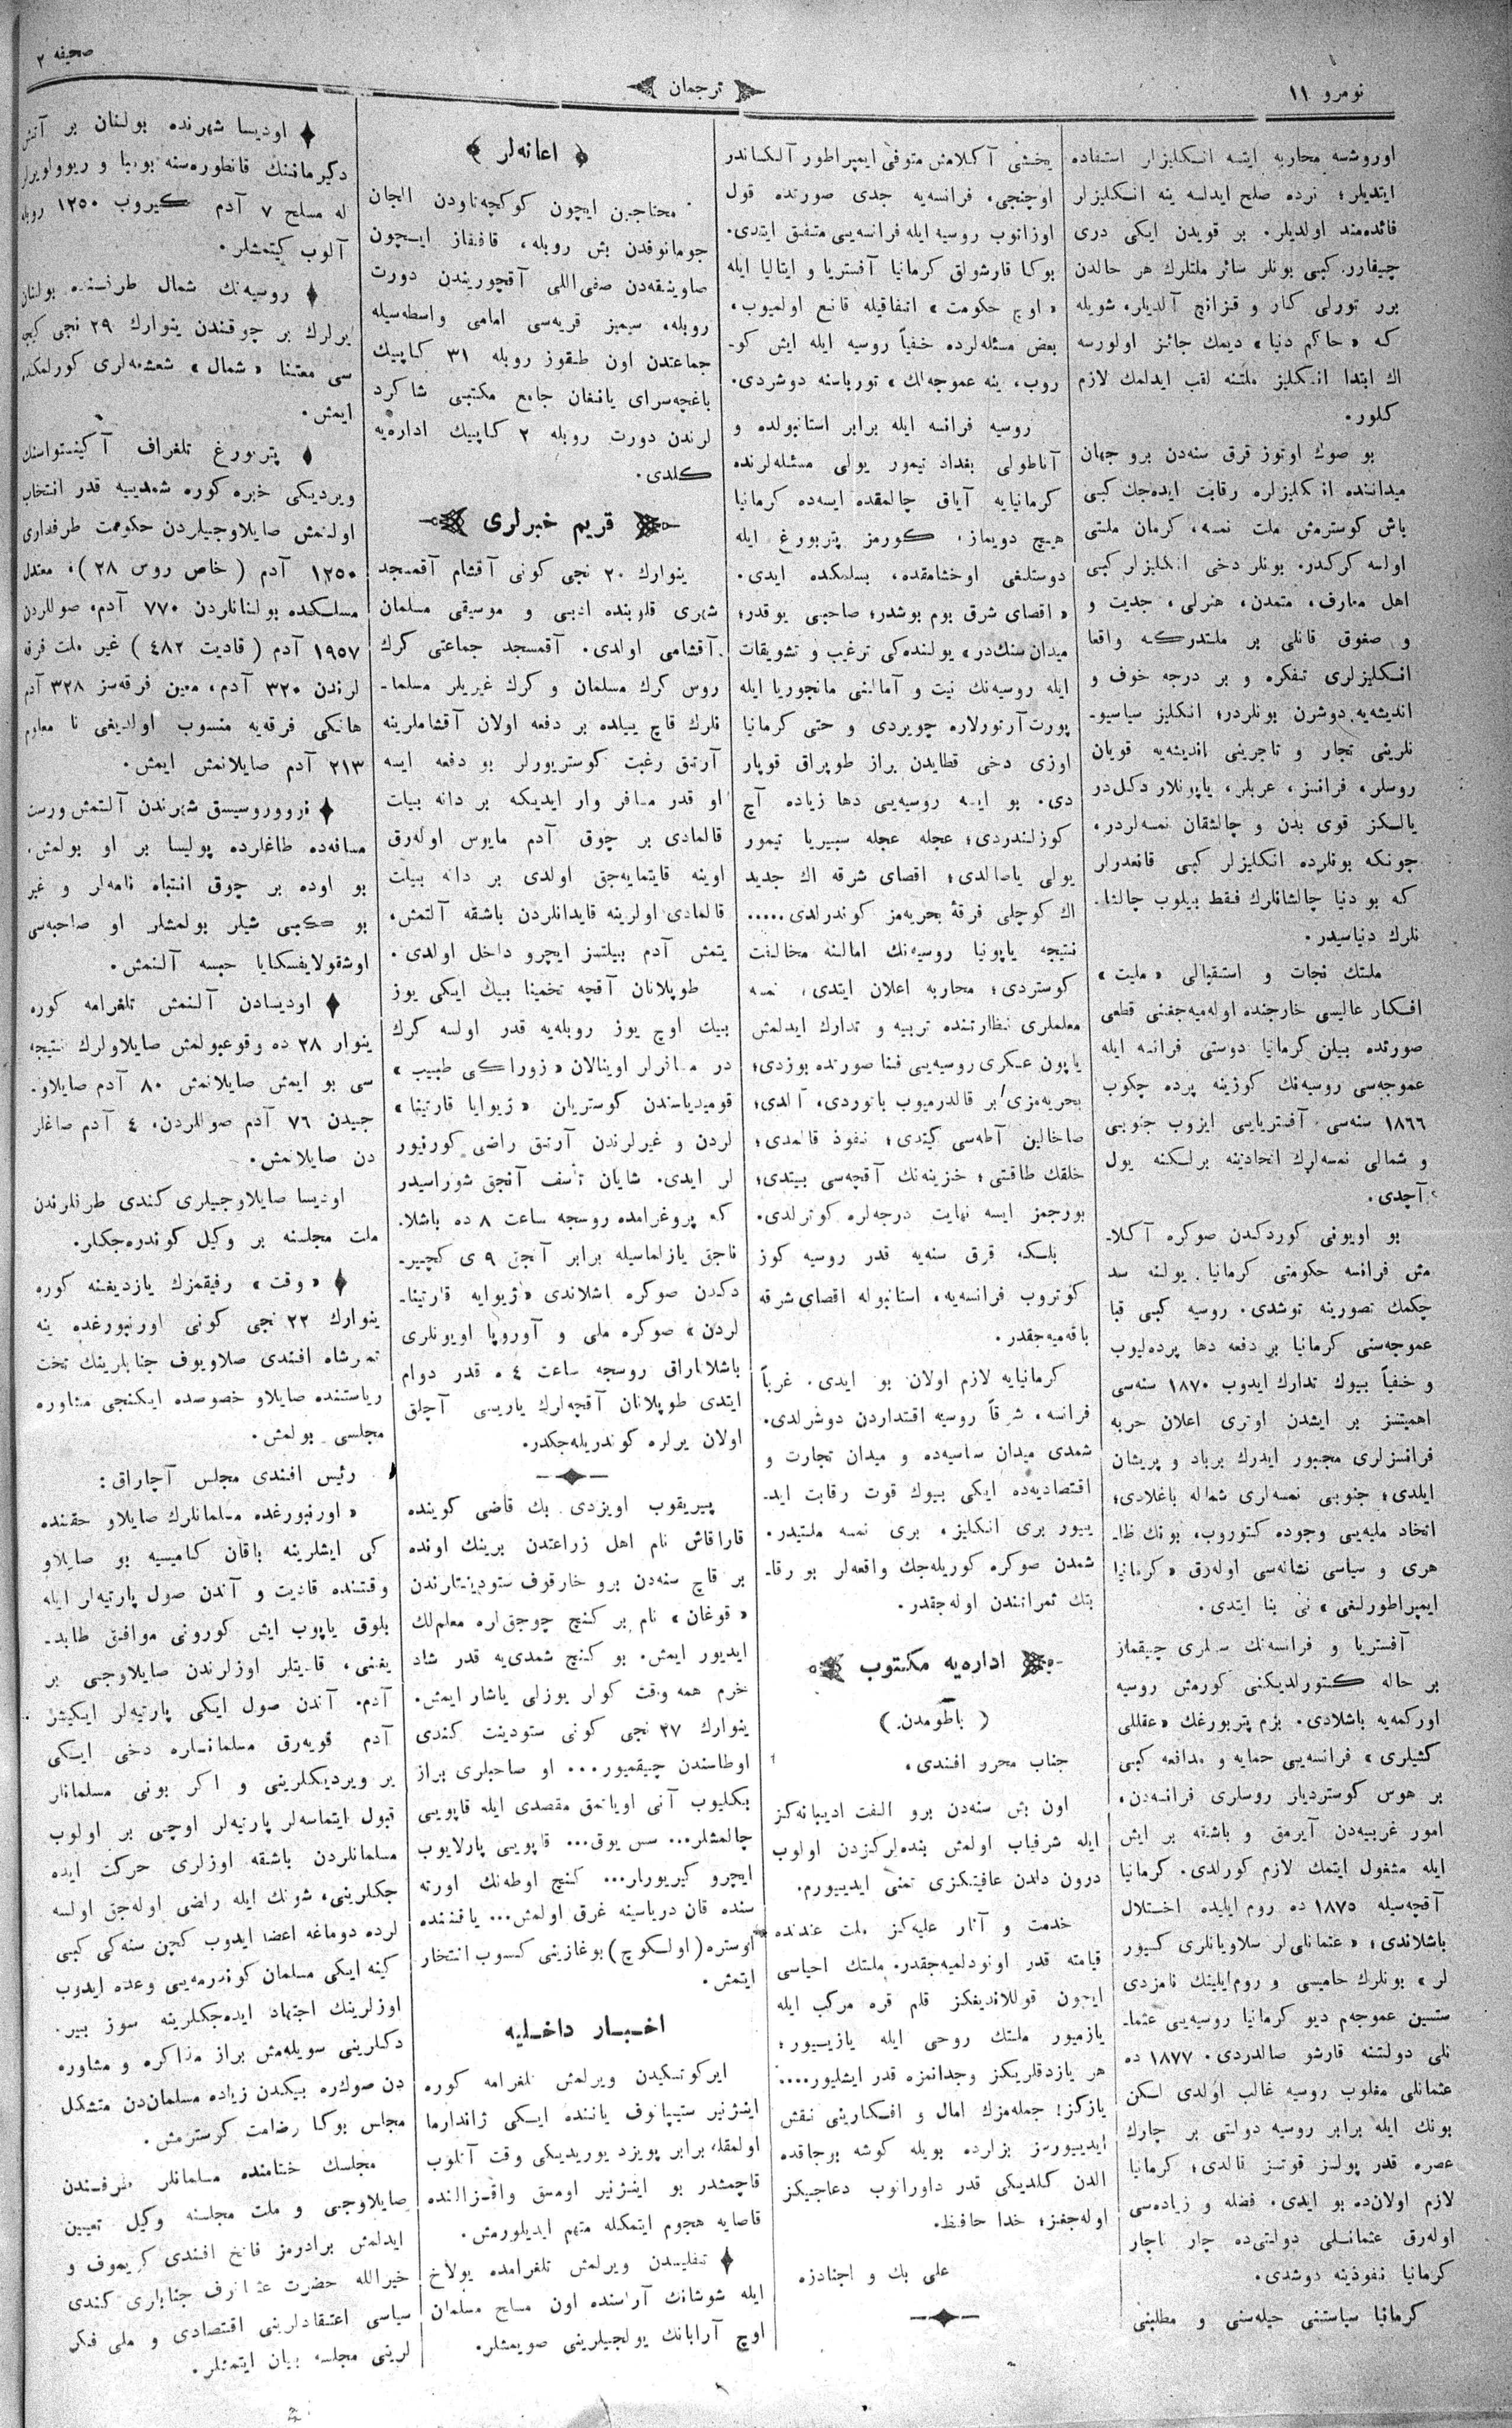 نومرو ١١
ترجمان
صحیفه ٢
اوروشسه محاربه ایتسه انكلیزلر استفاده
ایتدیلر؛ نرده صلح ایدلسه ینه انكلیزلر
فائده‌مند اولدیلر. بر قویدن ایكی دری
چیقارر كبی بونلر سائر ملتلرك هر حالدن
برر تورلی كار و قزانج آلدیلر. شویله
كه «حاكم دنیا» دیمك جائز اولورسه
اك ابتدا انكلیز ملتنه لقب ایدلمك لازم
كلور.
بو صوك اوتوز قرق سنه‌دن برو جهان
میداننده انكلیزلره رقابت ایده‌جك كبی
باش كوسترمش ملت نمسه، كرمان ملتی
اولسه كركدر. بونلر دخی انكلیزلر كبی
اهل معارف، متمدن، هنرلی، جدیت و
و صغوق قانلی بر ملتدركه واقعا
انكلیزلری تفكره و بر درجه خوف و
اندیشه‌یه دوشرن بونلردر؛ انكلیز سیاسیو-
نلرینی تجار و تاجرینی اندیشه‌یه قویان
روسلر، فرانسز، عربلر، یاپونلار دكل‌در
یالكز قوی بدن و چالشقان نمسه‌لردر،
چونكه بونلرده انكلیزلر كبی قانعدرلر
كه بو دنیا چالشانلرك فقط بیلوب چالشا-
نلرك دنیاسیدر.
ملتك نجات و استقبالی «ملیت»
افكار عالیسی خارجنده اوله‌میه‌جغنی قطعی
صورتده بیلن كرمانیا دوستی فرانسه ایله
عموجه‌سی روسیه‌نك كوزینه پرده چكوب
١٨٦٦ سنه‌سی آفستریایی ایزوب جنوبی
و شمالی نمسه‌لرك اتحادینه برلكنه یول
آچدی.
بو اویونی كوردكدن صوكره آكلا-
مش فرانسه حكومتی كرمانیا یولنه سد
چكمك تصورینه توشدی. روسیه كبی قبا
عموجه‌سنی كرمانیا بر دفعه دها پرده‌لیوب
و خفیاً بیوك تدارك ایدوب ١٨٧٠ سنه‌سی
اهمیتسز بر ایشدن اوتری اعلان حربه
فرانسزلری مجبور ایدرك برباد و پریشان
ایلدی؛ جنوبی نمسه‌لری شماله باغلادی؛
اتحاد ملیه‌یی وجوده كتوروب، بونك ظا-
هری و سیاسی نشانه‌سی اوله‌رق «كرمانیا
ایمپراطورلغی» نی بنا ایتدی.
آفستریا و فرانسه‌نك سلمری چیقماز
بر حاله كتورلدیكنی كورمش روسیه
اوركمه‌یه باشلادی. بزم پتربورغك «عقللی
كشیلری» فرانسه‌یی حمایه و مدافعه كبی
بر هوس كوستردیلر روسلری فرانسه‌دن،
امور غربیه‌دن آیرمق و باشقه بر ایش
ایله مشغول ایتمك لازم كورلدی. كرمانیا
آقچه‌سیله ١٨٧٥ ده روم ایلیده اختلال
باشلاندی؛ «عثمانلی‌لر سلاویانلری كسیور
لر» بونلرك حامیسی و روم‌ایلینك نامزدی
سنسین عموجه‌م دیو كرمانیا روسیه‌یی عثما-
نلی دولتنه قارشو صالدردی. ١٨٧٧ ده
عثمانلی مغلوب روسیه غالب اولدی لكن
بونك ایله برابر روسیه دولتی بر چارك
عصره قدر پولسز قوتسز قالدی؛ كرمانیا
لازم اولان‌ده بو ایدی. فضله و زیاده‌سی
اوله‌رق عثمانلی دولتی‌ده چار ناچار
كرمانیا نفوذینه دوشدی.
كرمانیا سیاستنی حیله‌سنی و مطلبنی
یخشی آكلامش متوفی ایمپراطور آلكساندر
اوچنجی، فرانسه‌یه جدی صورتده قول
اوزاتوب روسیه ایله فرانسه‌یی متفق ایتدی.
بوكا قارشولق كرمانیا آفستریا و ایتالیا ایله
«اوچ حكومت» اتفاقیله قانع اولمیوب،
بعض مسئله‌لرده خفیاً روسیه ایله ایش كو-
روب، ینه عموجه‌لك» تورباسنه دوشردی.
روسیه فرانسه ایله برابر استانبولده و
آناطولی بغداد تیمور یولی مسئله‌لرنده
كرمانیایه آیاق چالمقده ایسه‌ده كرمانیا
هیچ دویماز، كورمز پتربورغ ایله
دوستلغی اوخشامقده، بسلمكده ایدی.
«اقصای شرق بوم بوشدر؛ صاحبی یوقدر؛
میدان سنك‌در» یولنده‌كی ترغیب و تشویقات
ایله روسیه‌نك نیت و آمالنی مانجوریا ایله
پورت آرتورلاره چویردی و حتی كرمانیا
اوزی دخی قطایدن براز طوپراق قوپار
دی. بو ایسه روسیه‌یی دها زیاده آچ
كوزلندردی؛ عجله عجله سیبیریا تیمور
یولی یاصالدی؛ اقصای شرقه اك جدید
اك كوچلی فرقهٔ بحریه‌مز كوندرلدی.....
نتیجه یاپونیا روسیه‌نك امالنه مخالفت
كوستردی؛ محاربه اعلان ایتدی، نمسه
معلملری نظارتنده تربیه و تدارك ایدلمش
یاپون عسكری روسیه‌یی فنا صورتده بوزدی؛
بحریه‌مزی بر قالدرمیوب باتوردی، آلدی؛
صاخالین آطه‌سی كیتدی؛ نفوذ قالمدی؛
خلقك طاقتی؛ خزینه‌نك آقچه‌سی بیتدی؛
بورجمز ایسه نهایت درجه‌لره كوترلدی.
بلكه قرق سنه‌یه قدر روسیه كوز
كوتروب فرانسه‌یه، استانبوله اقصای شرقه
باقه‌میه‌جقدر.
كرمانیایه لازم اولان بو ایدی. غرباً
فرانسه، شرقاً روسیه اقتداردن دوشرلدی.
شمدی میدان سیاسیه‌ده و میدان تجارت و
اقتصادیه‌ده ایكی بیوك قوت رقابت اید-
ییور بری انكلیز، بری نمسه ملتیدر.
شمدن صوكره كوریله‌جك واقعه‌لر بو رقا-
بتك ثمراتندن اوله‌جقدر.
اداره‌یه مكتوب
(باطومدن)
جناب محرر افندی،
اون بش سنه‌دن برو الفت ادیبانه‌كز
ایله شرفیاب اولمش بنده‌لركزدن اولوب
درون دلدن عافیتكزی تمنی ایدییورم.
خدمت و آثار علیه‌كز ملت عندنده
قیامته قدر اونودلمیه‌جقدر. ملتك احیاسی
ایچون قوللاندیغكز قلم قره مركب ایله
یازمیور ملتك روحی ایله یازییور؛
هر یازدقلریكز وجدانمزه قدر ایشلیور....
یازكز! جمله‌مزك امال و افكارینی نقش
ایدییورسز بزلرده بویله كوشه بوجاقده
الدن كلدیكی قدر داورانوب دعاجیكز
اوله‌جغز؛ خدا حافظ.
علی بك و اجنادزه
اعانه‌لر
محتاجین ایچون كوكچه‌ناودن الجان
جومانوفدن بش روبله، قافقاز ایچون
صاوینقه‌دن صفی‌اللی آقچوریندن دورت
روبله، سیمیز قریه‌سی امامی واسطه‌سیله
جماعتدن اون طقوز روبله ٣١ كاپیك
باغچه‌سرای یافغان جامع مكتبی شاكرد
لرندن دورت روبله ٢ كاپیك اداره‌یه
كلدی.
قریم خبرلری
ینوارك ٢٠ نجی كونی آقشام آقمسجد
شهری قلوبنده ادبی و موسیقی مسلمان
آقشامی اولدی. آقمسجد جماعتی كرك
روس كرك مسلمان و كرك غیریلر مسلما-
نلرك قاچ ییلده بر دفعه اولان آقشاملرینه
آرتق رغبت كوستریورلر بو دفعه ایسه
او قدر مسافر وار ایدیكه بر دانه بیلت
قالمادی بر چوق آدم مایوس اوله‌رق
اوینه قایتمایه‌جق اولدی بر دانه بیلت
قالمادی اولرینه قایدانلردن باشقه آلتمش،
یتمش آدم بیلتسز ایچرو داخل اولدی.
طوپلانان آقچه تخمینا بیك ایكی یوز
بیك اوچ یوز روبله‌یه قدر اولسه كرك
در مسافرلر اوینالان «زوراكی طبیب»
قومیدیاسندن كوستریلن «ژیوایا قارتینا»
لردن و غیرلرندن آرتق راضی كورنیور
لر ایدی. شایان تأسف آنجق شوراسیدر
كه پروغرامده روسجه ساعت ٨ ده باشلا-
ناجق یازلماسیله برابر آنجق ٩ ی كچیر-
دكدن صوكره باشلاندی «ژیوایه قارتینا-
لردن» صوكره ملی و آوروپا اویونلری
باشلاناراق روسجه ساعت ٤ ه قدر دوام
ایتدی طوپلانان آقچه‌لرك یاریسی آچلق
اولان یرلره كوندریله‌جكدر.
پیریقوب اویزدی بك قاضی كوینده
قاراقاش نام اهل زراعتدن برینك اونده
بر قاچ سنه‌دن برو خارقوف ستودینتلرندن
«قوغان» نام بر كنچ چوجقلره معلملك
ایدیور ایمش. بو كنچ شمدی‌یه قدر شاد
خرم همه وقت كولر یوزلی یاشار ایمش.
ینوارك ٢٧ نجی كونی ستودینت كندی
اوطاسندن چیقمیور... او صاحبلری براز
بكلیوب آنی اویاتمق مقصدی ایله قاپویی
چالمشلر... سس یوق... قاپویی پارلایوب
ایچرو كیریورلر... كنچ اوطه‌نك اورته
سنده قان دریاسینه غرق اولمش... یاقننده
اوستره (اولسكوچ) بوغازینی كسوب انتخار
ایتمش.
اخبار داخلیه
ایركوتسكیدن ویرلمش تلغرامه كوره
اینژنیر ستیپانوف یاننده ایكی ژاندارما
اولمقله برابر پویزد یوریدیكی وقت آتلوب
قاچمشدر بو اینژنیر اومسق واقزالنده
قاصایه هجوم ایتمكله متهم ایدیلورمش.
تفلیسدن ویرلمش تلغرامده یولاخ
ایله شوشانك آراسنده اون مسلح مسلمان
اوچ آرابانك یولجیلرینی صویمشلر.
اودیسا شهرنده بولنان بر آتش
دكیرماننك قانطوره‌سنه بومبا و ریوولویرلر
له مسلح ٧ آدم كیروب ١٢٥٠ روبله
آلوب كیتمشلر.
روسیه‌نك شمال طرفنده بولنان
یرلرك بر چوقندن ینوارك ٢٩ نجی كیجه
سی معتنا «شمال» شعشعه‌لری كورلمكده
ایمش.
پتربورغ تلغراف آكینتواسنك
ویردیكی خبره كوره شمدییه قدر انتخاب
اولنمش صایلاوجیلردن حكومت طرفداری
١٢٥٠ آدم (خاص روس ٢٨)، معتدل
مسلكده بولنانلردن ٧٧٠ آدم، صوللردن
١٩٥٧ آدم (قادیت ٤٨٢) غیر ملت فرقه
لرندن ٣٢٠ آدم، معین فرقه‌سز ٣٢٨ آدم
هانكی فرقه‌یه منسوب اولدیغی نا معلوم
٢١٣ آدم صایلانمش ایمش.
نووروسیسق شهرندن آلتمش ورست
مسافه‌ده طاغلرده پولیسا بر او بولمش.
بو اوده بر چوق انتباه نامه‌لر و غیر
بو كبی شیلر بولمشلر او صاحبه‌سی
اوشقولایفسكایا حبسه آلنمش.
اودیسادن آلنمش تلغرامه كوره
ینوار ٢٨ ده وقوعبولمش صایلاولرك نتیجه
سی بو ایمش صایلانمش ٨٠ آدم صایلاو-
جیدن ٧٦ آدم صوللردن، ٤ آدم صاغلر
دن صایلانمش.
اودیسا صایلاوجیلری كندی طرفلرندن
ملت مجلسنه بر وكیل كوندره‌جكلر.
«وقت» رفیقمزك یازدیغنه كوره
ینوارك ٢٢ نجی كونی اورنبورغده ینه
تمرشاه افندی صلاویوف جنابلرینك تحت
ریاستنده صایلاو خصوصده ایكنجی مشاوره
مجلسی بولمش.
رئیس افندی مجلس آچاراق:
«اورنبورغده مسلمانلرك صایلاو حقنده
كی ایشلرینه باقان كامیسیه بو صایلاو
وقتنده قادیت و آندن صول پارتیه‌لر ایله
بلوق یاپوب ایش كورونی موافق طابد-
یغنی، قادیتلر اوزلرندن صایلاوجی بر
آدم، آندن صول ایكی پارتیه‌لر ایكیشر
آدم قویه‌رق مسلمانلره دخی ایكی
یر ویردیكلرینی و اكر بونی مسلمانلر
قبول ایتماسه‌لر پارتیه‌لر اوچی بر اولوب
مسلمانلردن باشقه اوزلری حركت ایده
جكلرینی، شونك ایله راضی اوله‌جق اولسه
لرده دوماغه اعضا ایدوب كچن سنه‌كی كبی
كینه ایكی مسلمان كوندرمه‌یی وعده ایدوب
اوزلرینك اجتهاد ایده‌جكلرینه سوز بیر-
دكلرینی سویله‌مش براز مذاكره و مشاوره
دن صوكره بیكدن زیاده مسلمان‌دن متشكل
مجلس بوكا رضامت كوسترمش.
مجلسك ختامنده مسلمانلر طرفندن
صایلاوجی و ملت مجلسنه وكیل تعیین
ایدلمش برادرمز فاتح افندی كریموف و
خیرالله حضرت عثمانوف جنابلری كندی
سیاسی اعتقادلرینی اقتصادی و ملی فكر
لرینی مجلسه بیان ایتمشلر.